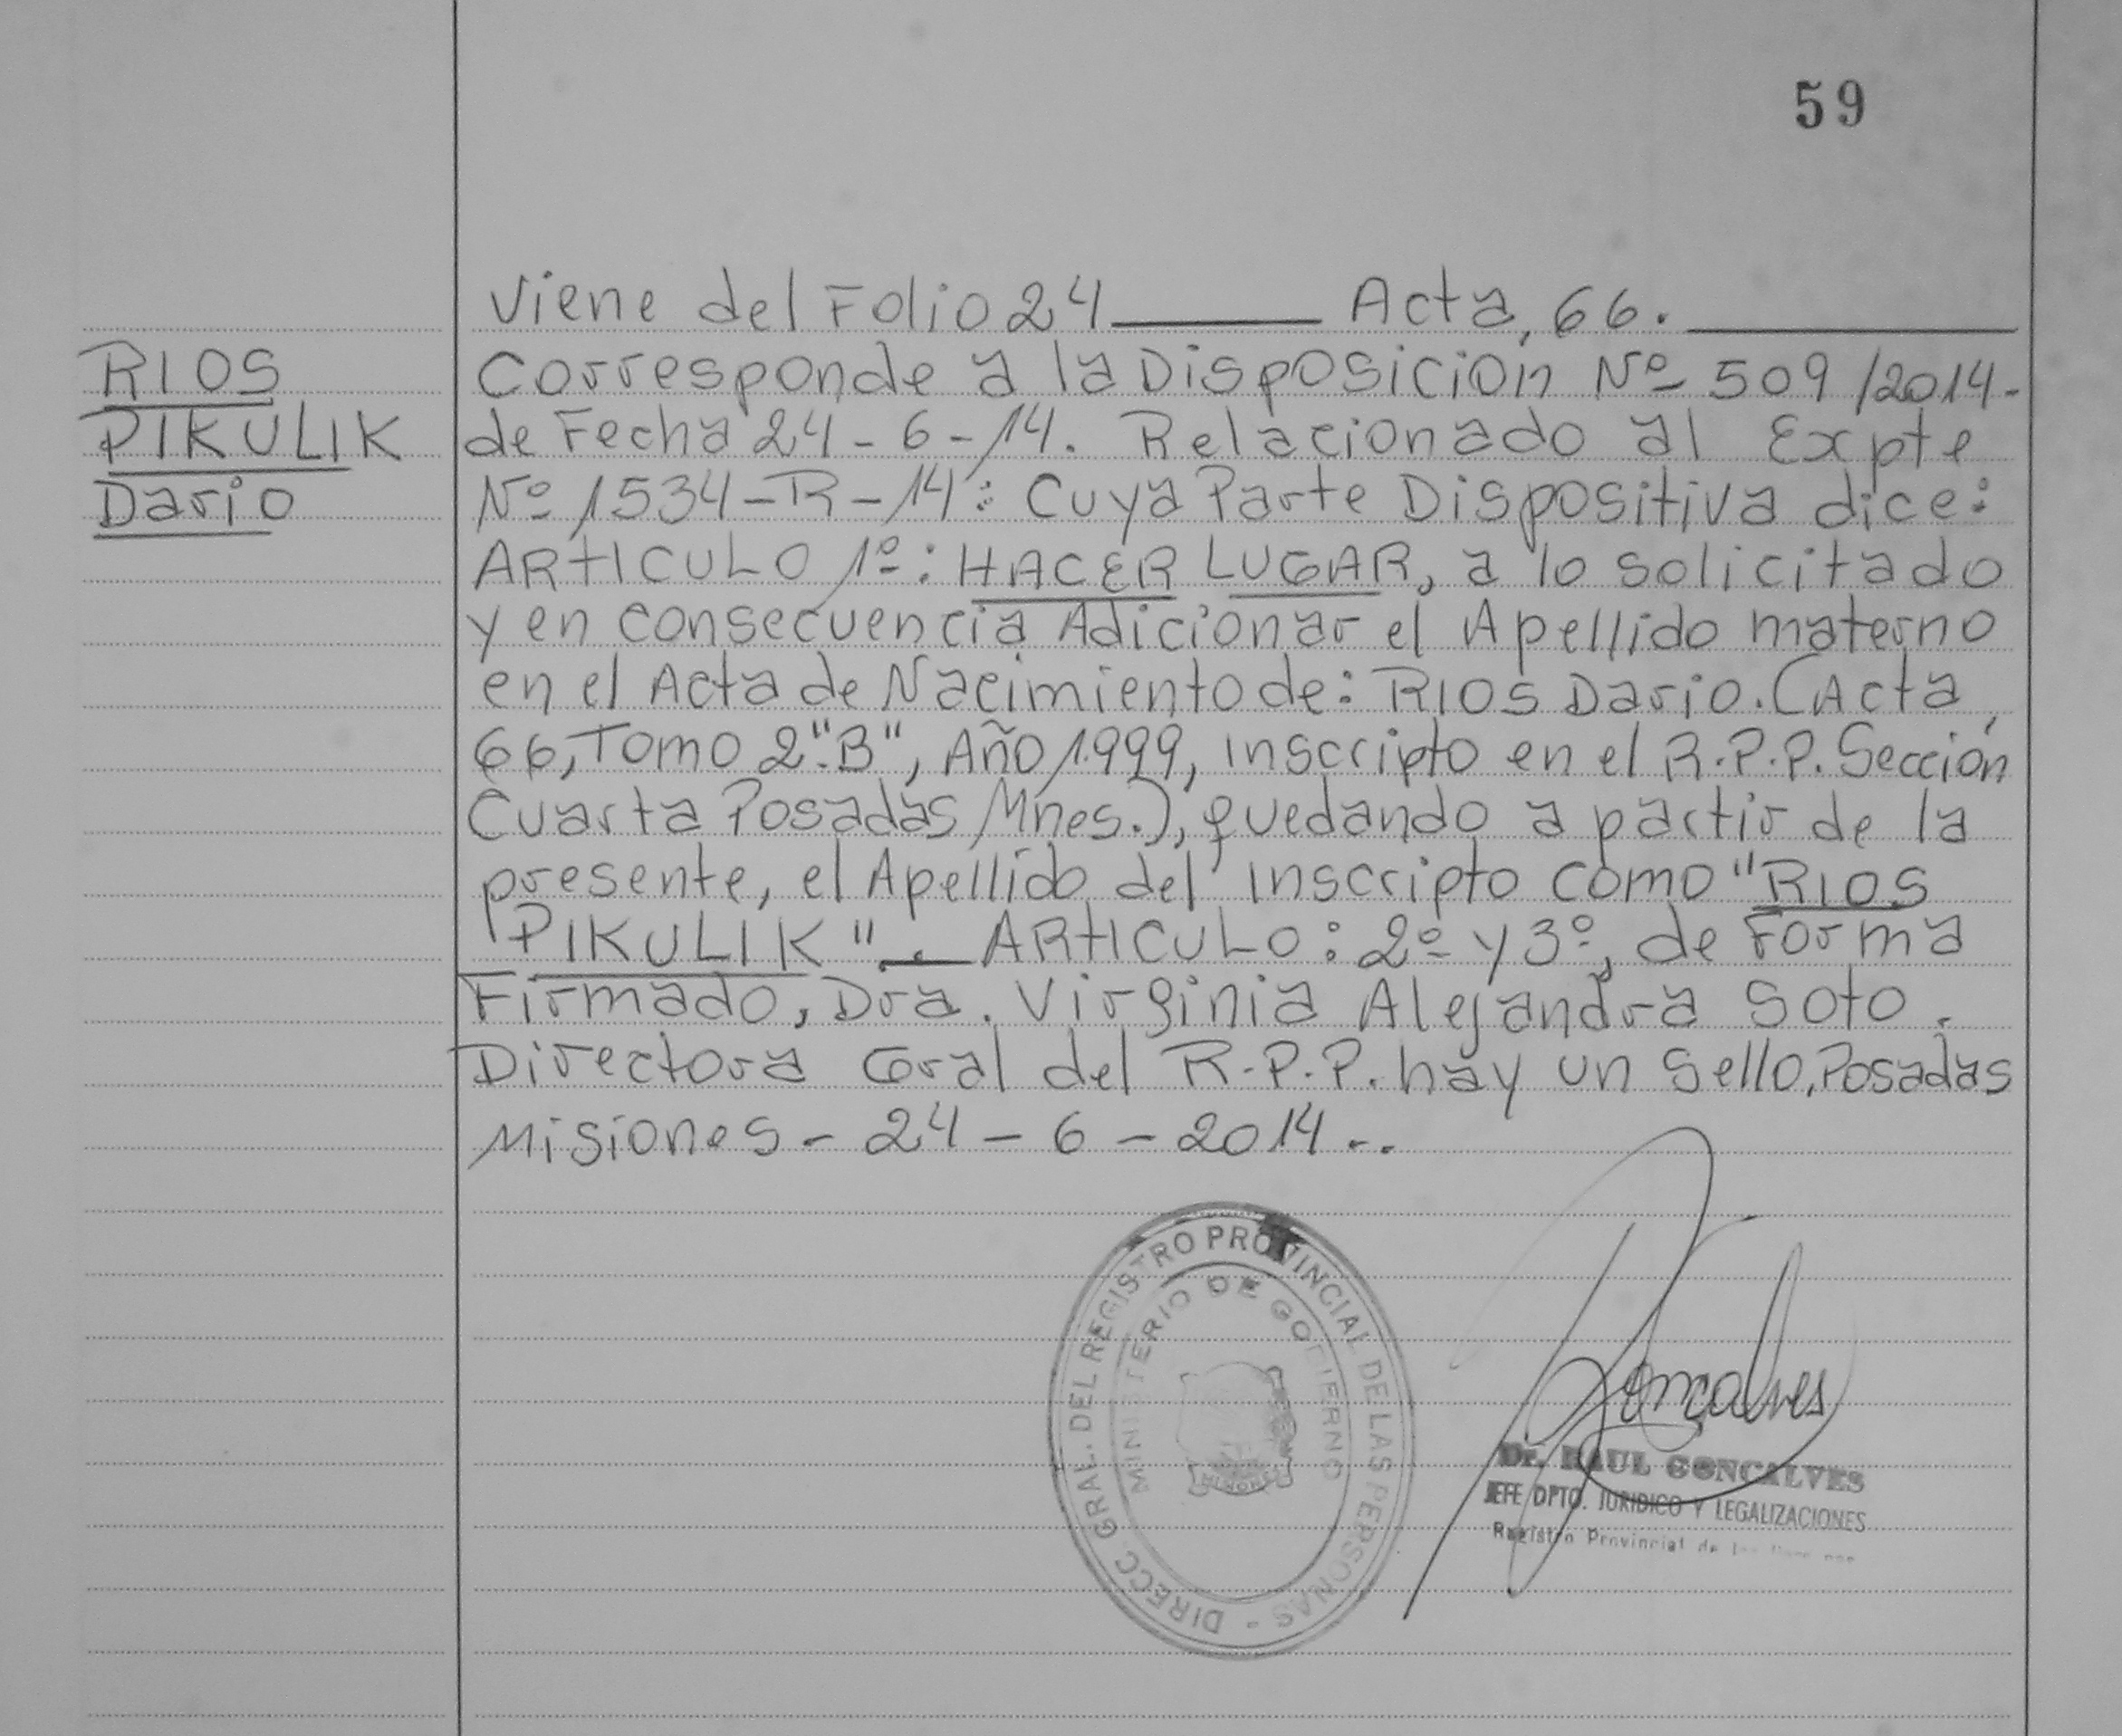 59
Viene del Folio 24 ——— Acta, 66. ———
RIOS
PIKULIK
Dario
Corresponde a la Disposición Nº 509/2014-
de Fecha 24-6-14. Relacionado al Expte
Nº 1534-R-14: Cuya Parte Dispositiva dice:
ARTICULO 1º: HACER LUGAR, a lo solicitado
y en consecuencia Adicionar el Apellido materno
en el Acta de Nacimiento de: RIOS Dario. (Acta
66, Tomo 2º "B", Año 1999, inscripto en el R.P.P. Sección
Cuarta Posadas Mnes.), quedando a partir de la
presente, el Apellido del inscripto como "RIOS
PIKULIK". — ARTICULO: 2º y 3º, de Forma
Firmado, Dra. Virginia Alejandra Soto.
Directora Gral del R.P.P. hay un sello, Posadas
Misiones - 24 - 6 - 2014..
DIRECC. GRAL. DEL REGISTRO PROVINCIAL DE LAS PERSONAS -
MINISTERIO DE GOBIERNO
MISIONES
Goncalves
Dr. RAUL GONCALVES
JEFE DPTO. JURIDICO Y LEGALIZACIONES
Registro Provincial de las Personas